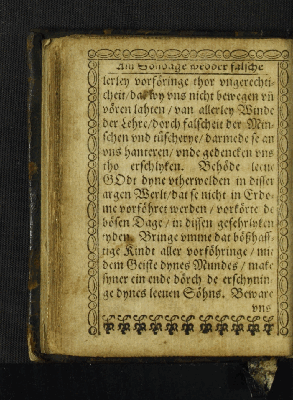 Am Sondage wedder falsche
lerley vorföringe thor vngerechti-
cheit / dat wy vns nicht bewegen vñ
vören lahten / van allerley Winde
der Lehre / dorch falscheit der Min-
schen vnd tüscherye / darmede se an
vns hanteren / vnde gedencken vns
tho erschlyken. Behöde leeue
GOdt dyne vtherwelden in disser
argen Werlt / dat se nicht in Erdo-
me vorföhret werden / vorkörte de
bösen Dage / in dissen gefehrlyken
tyden. Bringe vmme dat bößhaf-
tige Kindt aller vorföhringe / mit
dem Geiste dynes Mundes / make
syner ein ende dörch de erschynin-
ge dynes leeuen Söhns. Beware
vns